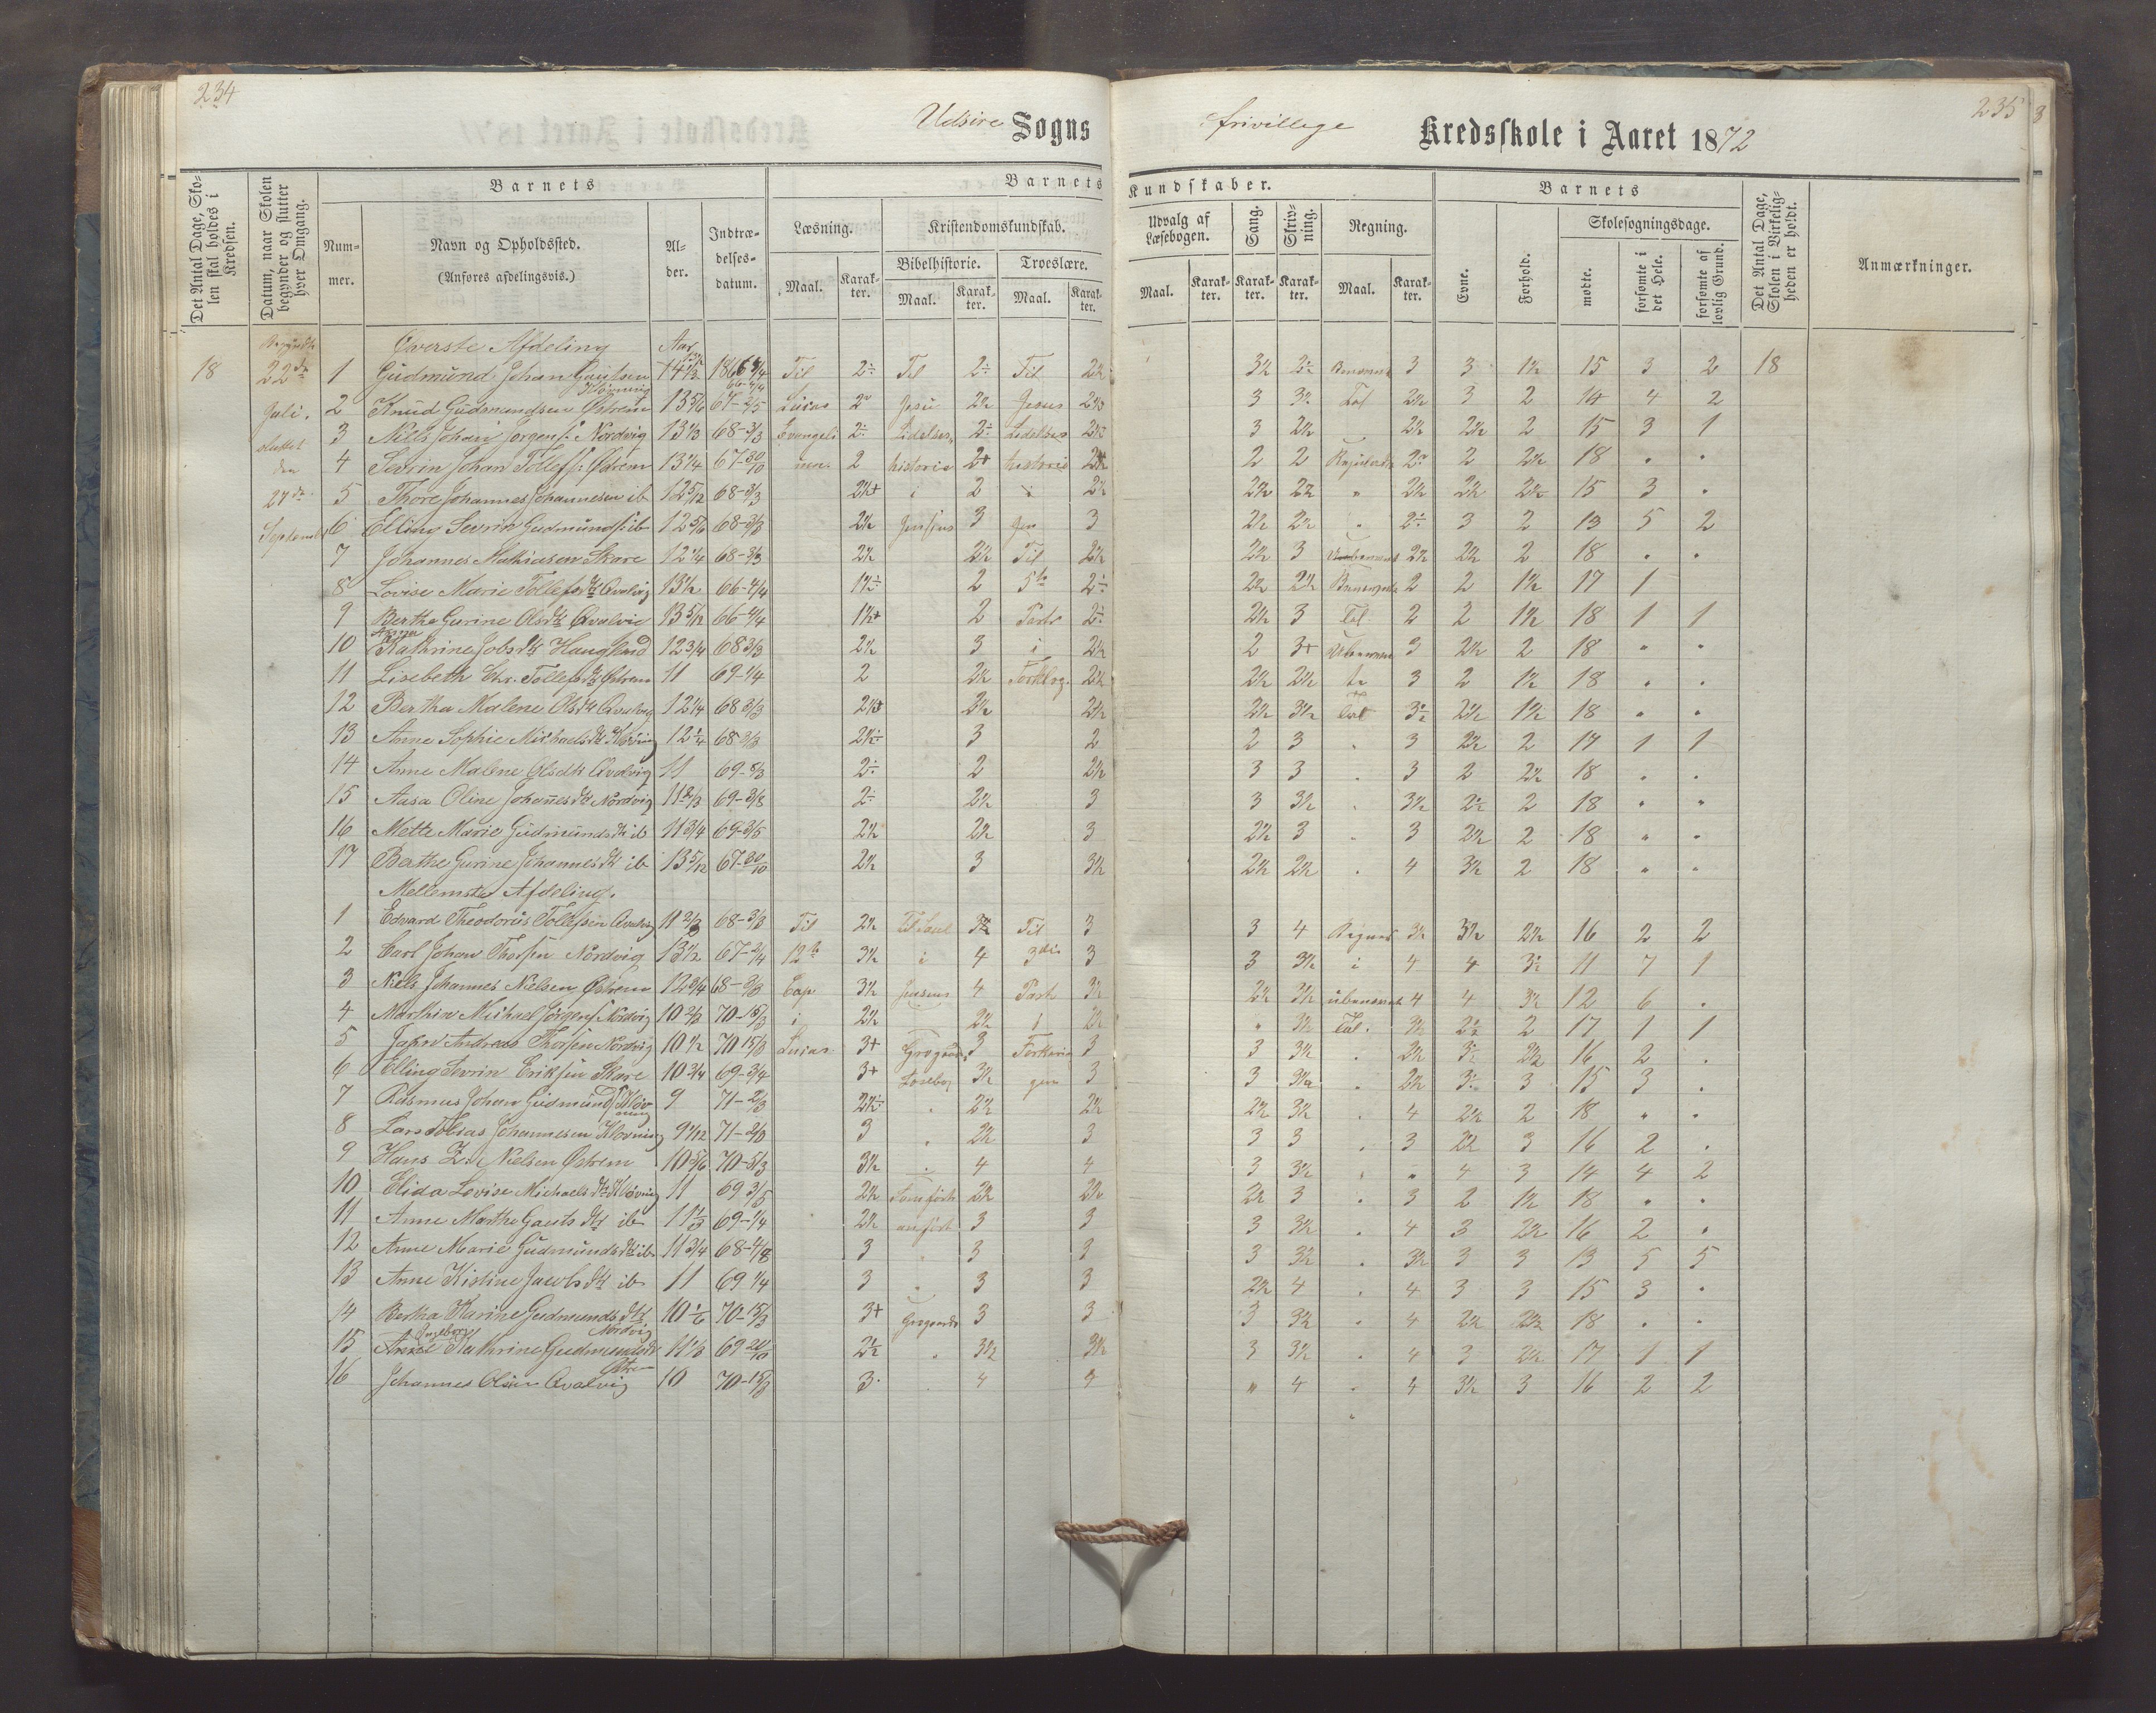 234
Udsire Sogns
frivillige Kredsskole i Aaret 1872
235
Det Antal Dage, Skolen skal holdes i Kredsen.
Datum, naar Skolen begynder og slutter hver Omgang.
Barnets
Nummer.
Navn og Opholdssted.
(Anføres afdelingsvis.)
Alder.
Indtrædelsesdatum.
Barnets Kundskaber.
Læsning.
Maal. Karakter.
Kristendomskundskab.
Bibelhistorie.
Maal. Karakter.
Troeslære.
Maal. Karakter.
Udvalg af Læsebogen.
Maal. Karakter.
Sang.
Karakter.
Skrivning.
Karakter.
Regning.
Maal. Karakter.
Barnets
Evne.
Forhold.
Skolesøgningsdage.
mødte.
forsømte i det Hele.
forsømte af lovlig Grund.
Det Antal Dage, Skolen i Virkeligheden er holdt.
Anmærkninger.
Øverste Afdeling Aar
18 22de 1 Gudmund Johan Gautsen Kløvning Til 2÷ Til 2÷ Til 2½ 3½ 2÷ 3 3 1½ 15 3 2 18
Juli. 2 Knud Gudmundsen Østrem 13 5/6 67-2/5 Lucas Jesu 2½ Jesus 3 3 Tal 2½ 3 2 14 4 2
sluttet 3 Niels Johan Jørgens. Nordvig 13 1/3 68-3/3 Evangeli 2÷ Lidelses 2÷ Lidelses 3 2½ 2½ 2½ 2 15 3 1
den 4 Sevrin Johan Tollefs. Østrem 13 1/4 67-30/10 um. 2 historie 2+ historie 2 2 2 2½ 18 " "
5 Thore Johannes Johannesen ib 12 5/12 68-3/3 2½+ i 2 i 2½ 2½ 2½ " 2½ 2½ 2½ 15 3 "
September 6 Elling Sevrin Gudmunds. ib 12 5/6 68-3/3 2½ 3 3 2½ 2½ " 2÷ 3 2 13 5 2
7 Johannes Mathiasen Skare 12 1/4 68-3/3 2½ 2½ Til 2½ 2½ 3 2½ 2½ 2 18 " "
8 Lovise Marie Tollefsdtr Qvalvig 13 1/2 66-4/4 1½÷ 2 5te 2÷ 2½ 2½ 2 2 1½ 17 1
9 Berthe Gurine Olsdtr Qvalvig 13 5/12 66-4/4 1½+ 2 Part 2÷ 2½ 3 Tal 2 2 1½ 18 1 1
10 Kathrine Jobsdtr Haugland 12 3/4 68 3/3 2½ 3 i 2½ 2 3+ 3 2½ 2 18 " "
11 Lisebeth Chr. Tollefsdtr Østrem 11 69-1/4 2 2½ Forklrg. 2½ 2½ 2½ 3 2 1½ 18 " "
12 Bertha Malene Olsdtr Qvalvig 12 1/4 68 3/3 2½+ 2½ 2½ 2½ 3½ Tal 3÷ 2½ 1½ 18 " "
13 Anne Sophie Michaelsdtr Kløvning 12 1/4 68 3/3 2½÷ 3 2 2 3 " 3 2½ 2 17 1 1
14 Anne Malene Olsdtr Qvalvig 11 69-5/3 2÷ 2 2½ 3 3 " 3 2 2½ 18 " "
15 Aasa Oline Johannesdtr Nordvig 11 2/3 69-3/8 2÷ 2½ 3 3 3½ " 3½ 2÷ 2 18 " "
16 Mette Marie Gudmundsdtr ib 11 3/4 69-3/5 2½ 2½ 3 2½ 3 " 3 2½ 2 18 " "
17 Berthe Gurine Johannesdtr ib 13 5/12 67-30/10 2½ 3 3½ 2½ 2½ " 4 3½ 2 18 " "
Mellemste Afdeling.
1 Edvard Theodorus Tollefsen Qvalvig 11 2/3 68-3/3 Til 2½ Til 3 3 4 Regnet 3½ 3½ 2½ 16 2 2
2 Carl Johan Thorsen Nordvig 13 1/2 67-2/4 12te 3½ i 4 3die 3 3 3½ i 4 4 3÷ 11 7 1
3 Niels Johannes Nielsen Østrem 12 3/4 68-3/3 Cap 3½ 4 Part 3½ 2½ 3½ ubenævnt 4 4 3½ 12 6 "
4 Marthin Michael Jørgens. Nordvig 10 2/3 70-15/3 i 2½ 2½ i 2½ " 3½ Tal. 3½ 2÷ 2 17 1 1
5 Jakob Andreas Thorsen Nordvig 10 1/2 70 15/3 Lucas 3+ 3 3 3 3½ " 2½ 3÷ 2½ 16 2 "
6 Elling Sevrin Eriksen Skare 10 3/4 69-3/4 3+ Læsebog 3½ gen 3 3 3½ " 2½ 3÷ 3 15 3 "
7 Rasmus Johan Gudmunds. Kløvning 9 71-2/3 2½÷ " 2½ 2½ 2½ 3½ " 4 2½ 2 18 " "
8 Lars Tobias Johannesen Kløvning 9 1/12 71-2/3 3 " 2½ 3 3 3 " 3 2½ 3 16 2 "
9 Hans Z. Nielsen Østrem 10 5/6 70-5/3 3½ " 4 4 3 3½ " " 4 3 14 4 2
10 Elida Lovise Michaelsdtr Kløvning 11 69 3/5 2½ 2½ 2½ 2½ 3 " 3 2 1½ 18 " "
11 Anne Marthe Gautsdtr ib 11 1/3 69-1/4 2½ anført 3 3 3 3½ " 4 3 2½ 16 2 "
12 Anne Marie Gudmundsdtr ib 11 3/4 68-4/8 3 " 3 3 3 3½ " 3½ 3 3 13 5 5
13 Anne Kistine Jacobsdtr ib 11 69 1/4 3 " 3 3 2½ 4 " 4 3 3 15 3 "
14 Bertha Karine Gudmundsdtr Nordvig 10 1/6 70-15/3 3+ 3 3 3 3½ " 4 2½ 2½ 18 " "
15 Ingeborg Kathrine Gudmundsdtr Østrem 11 1/3 2½ " 3½ 3½ 3 3½ " 4 3 2½ 17 1 1
16 Johannes Olsen Qvalvig 10 70-15/3 3 " 4 4 " 4 " 4 3½ 3 16 2 2